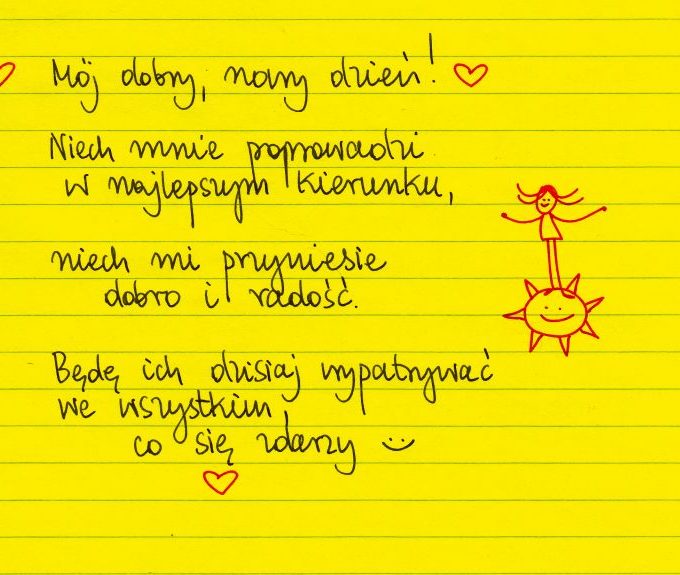 Mój dobry, nowy dzień!
Niech mnie poprowadzi
w najlepszym kierunku,
niech mi przyniesie
dobro i radość.
Będę ich dzisiaj wypatrywać
we wszystkim,
co się zdarzy